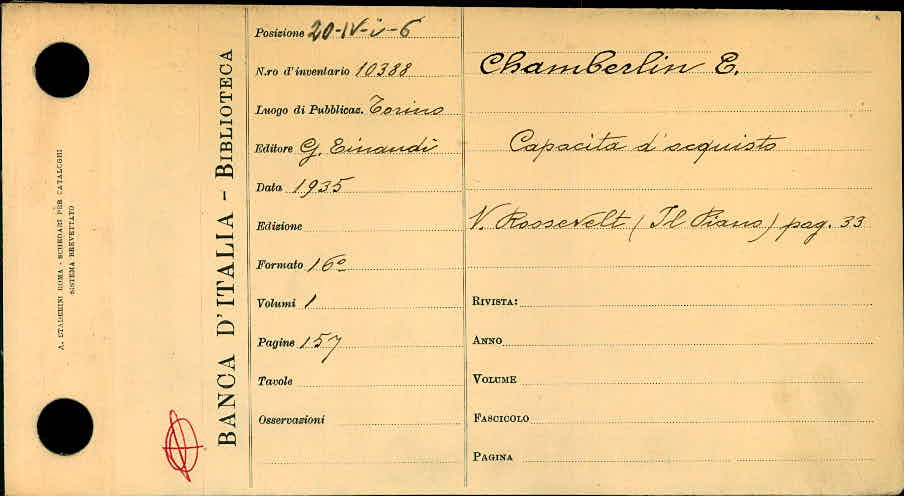 A. STADERINI ROMA - SCHEDARI PER CATALOGHI
SISTEMA BREVETTATO
BANCA D'ITALIA - BIBLIOTECA
Posizione 20-IV-i-6
N.ro d'inventario 10388
Luogo di Pubblicaz. Torino
Editore G. Einaudi
Data 1935
Edizione
Formato 16º
Volumi 1
Pagine 157
Tavole
Osservazioni
Chamberlin E.
Capacita d'acquisto
V. Roosevelt (Il Piano) pag. 33
RIVISTA:
ANNO
VOLUME
FASCICOLO
PAGINA